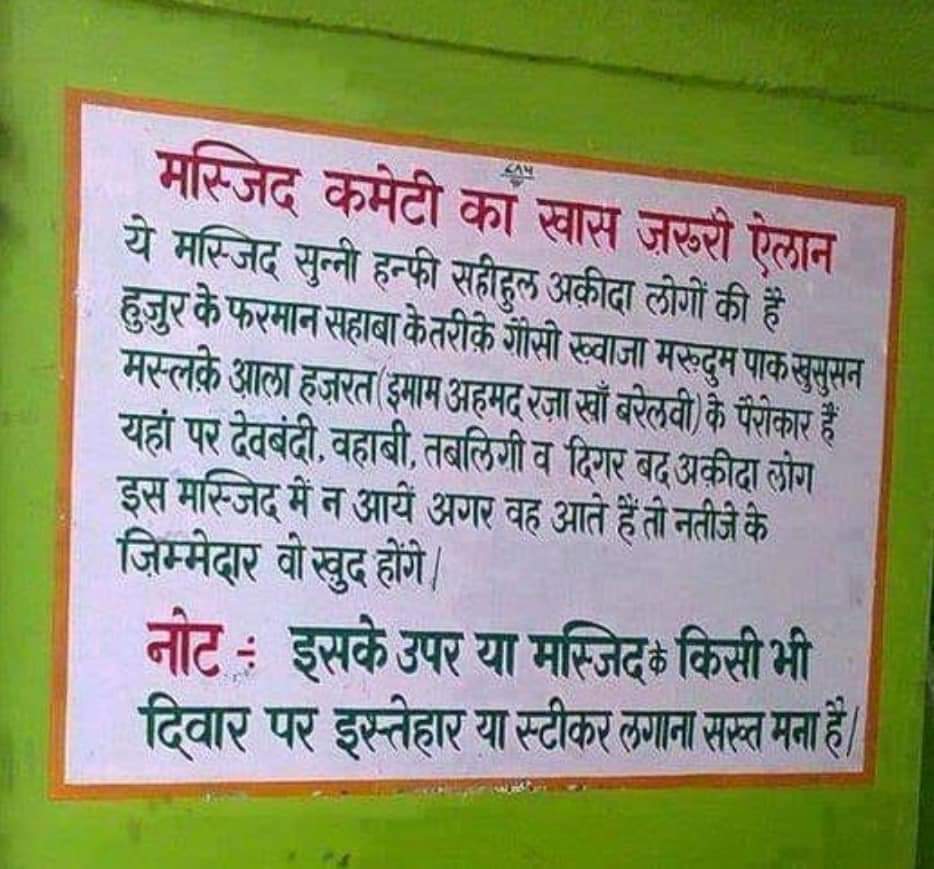 ७८६
मस्जिद कमेटी का खास ज़रूरी ऐलान
ये मस्जिद सुन्नी हन्फी सहीहुल अकीदा लोगों की है
हुजुर के फरमान सहाबा के तरीक़े ग़ौसो ख्वाजा मख्दुम पाक खुसुसन
मस्लक़े आला हज़रत (इमाम अहमद रज़ा खाँ बरेलवी) के पैरोकार हैं
यहां पर देवबंदी, वहाबी, तबलिगी व दिगर बद अकीदा लोग
इस मस्जिद में न आयें अगर वह आते हैं तो नतीजे के
ज़िम्मेदार वो खुद होंगे।
नोट ÷ इसके उपर या मस्जिद के किसी भी
दिवार पर इस्तेहार या स्टीकर लगाना सख्त मना है।